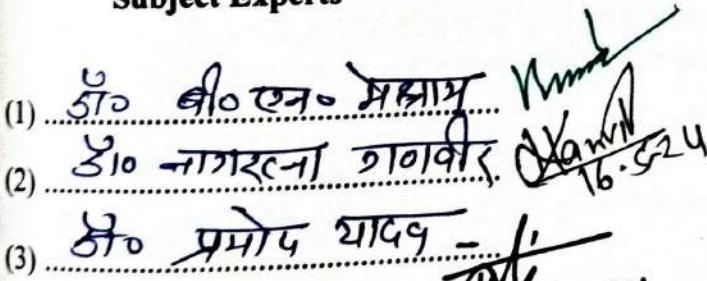 Subject Experts
(1) डॉ० बी० एन० मेश्राम
(2) डॉ० नागरत्ना गणवीर. 16.5.24
(3) डॉ० प्रमोद यादव -